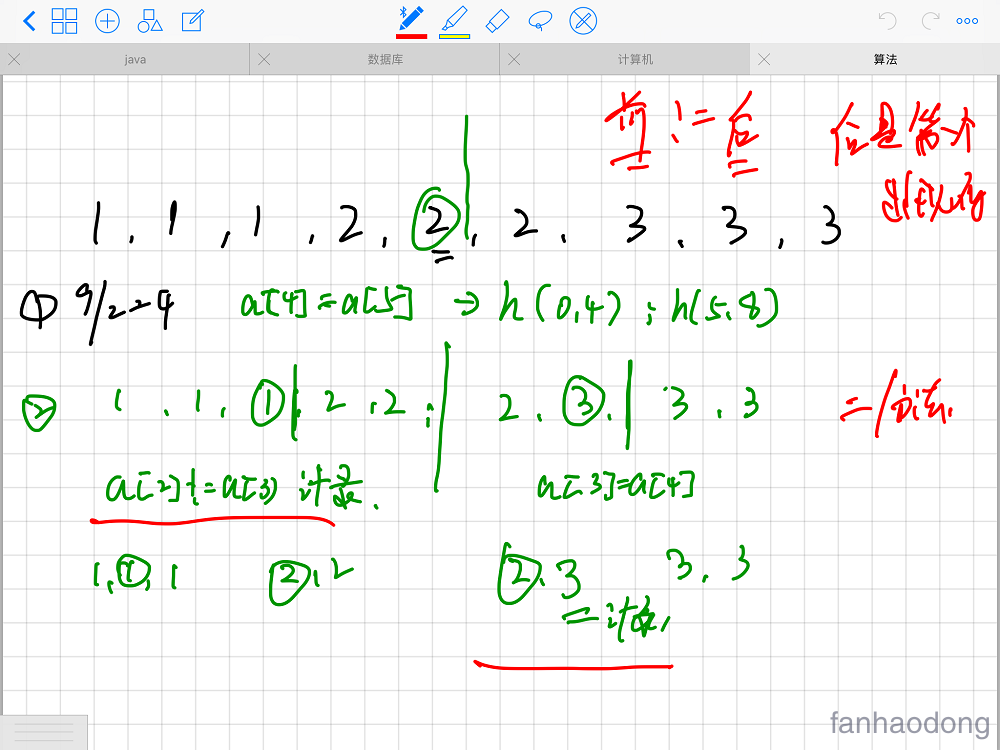 java 数据库 计算机 算法
前 != 后
后是第一个
1, 1, 1, 2, 2, 2, 3, 3, 3
① 9/2=4 a[4]=a[5] → h(0,4); h(5,8)
② 1, 1, ① | 2, 2; 2, ③, | 3, 3
二分法
a[2]!=a[3] 计数. a[3]=a[4]
1, ①, 1 ②, 2 ②, 3 3, 3
计数,
fanhaodong